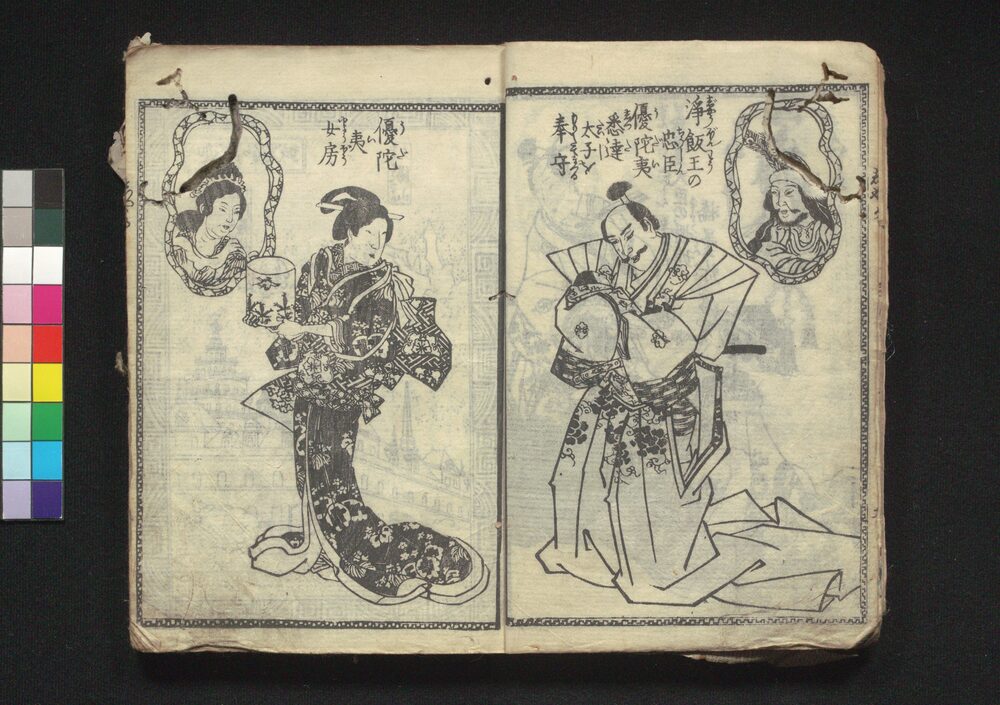 淨飯王の
忠臣
優陀夷
悉達
太子を
奉守
優陀
夷
女房